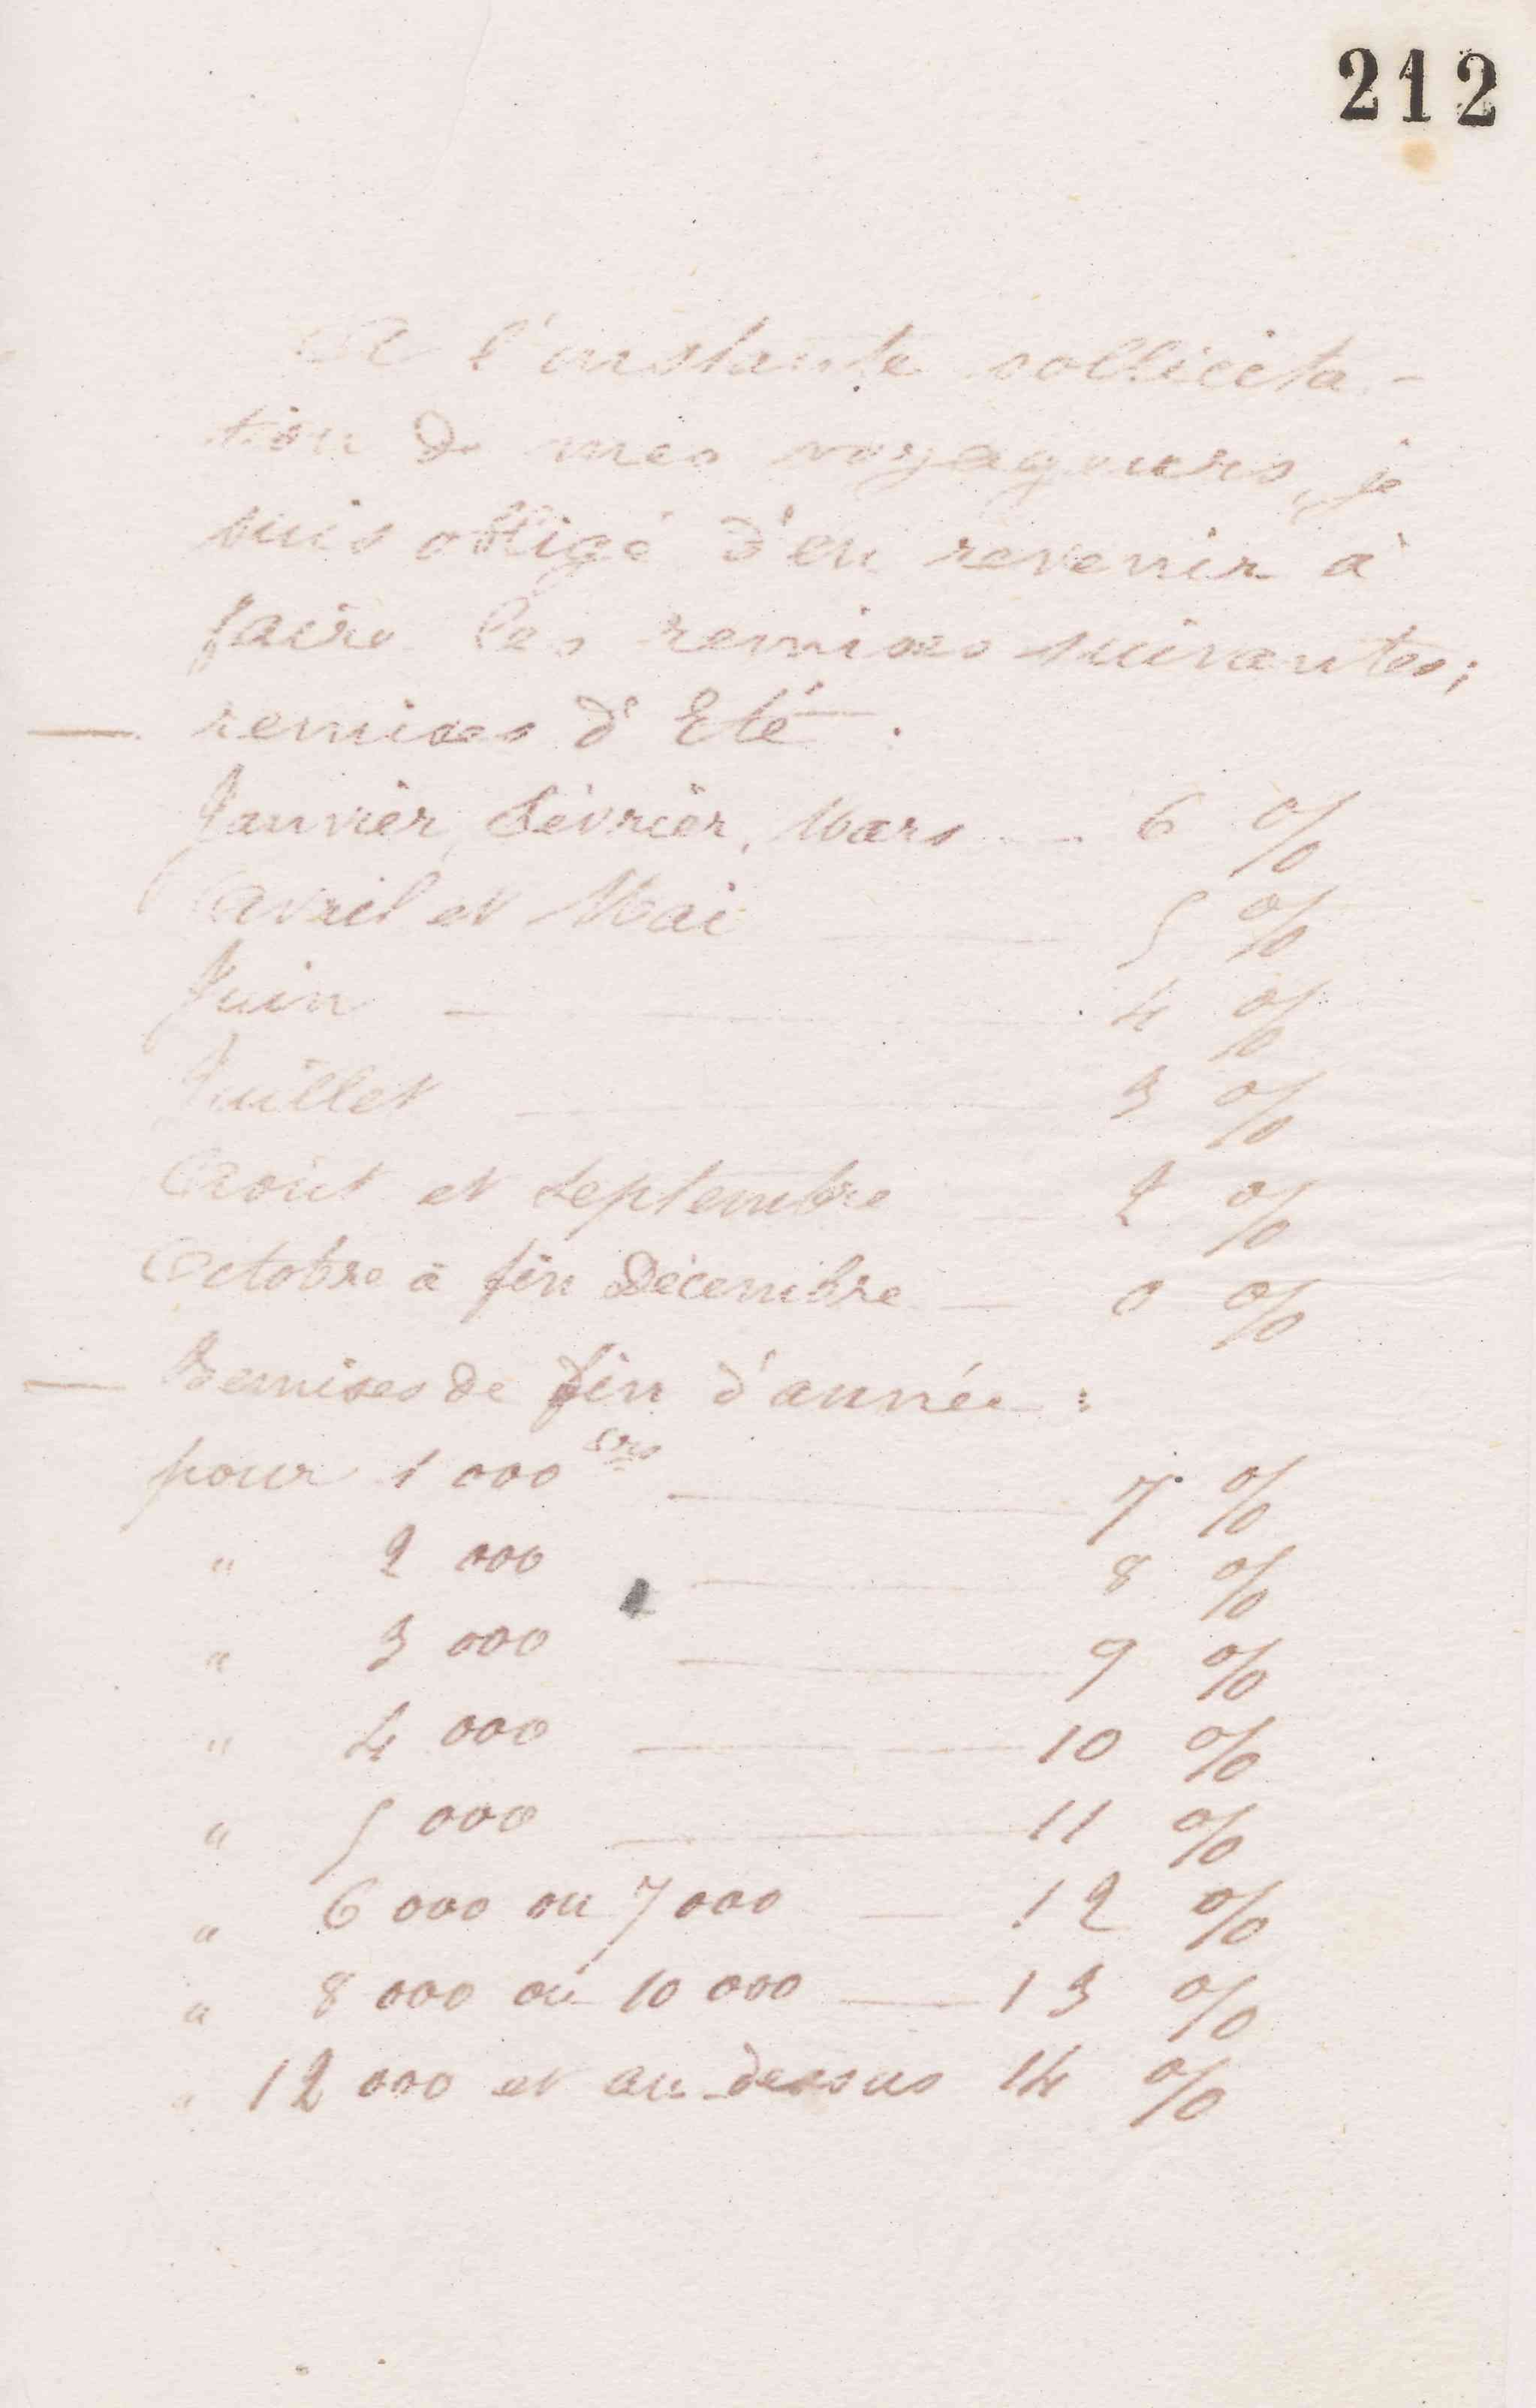 212
A l'instante sollicita-
tion de mes voyageurs, je
suis obligé d'en revenir à
faire les remises suivantes;
— remises d'Eté.
Janvier, Février, Mars — 6 %
Avril et Mai — 5 %
Juin — 4 %
Juillet — 3 %
Août et Septembre — 2 %
Octobre à fin Décembre — 0 %
— Remises de fin d'année :
pour 1 000 — 7 %
" 2 000 — 8 %
" 3 000 — 9 %
" 4 000 — 10 %
" 5 000 — 11 %
" 6 000 ou 7 000 — 12 %
" 8 000 ou 10 000 — 13 %
" 12 000 et au-dessus 14 %